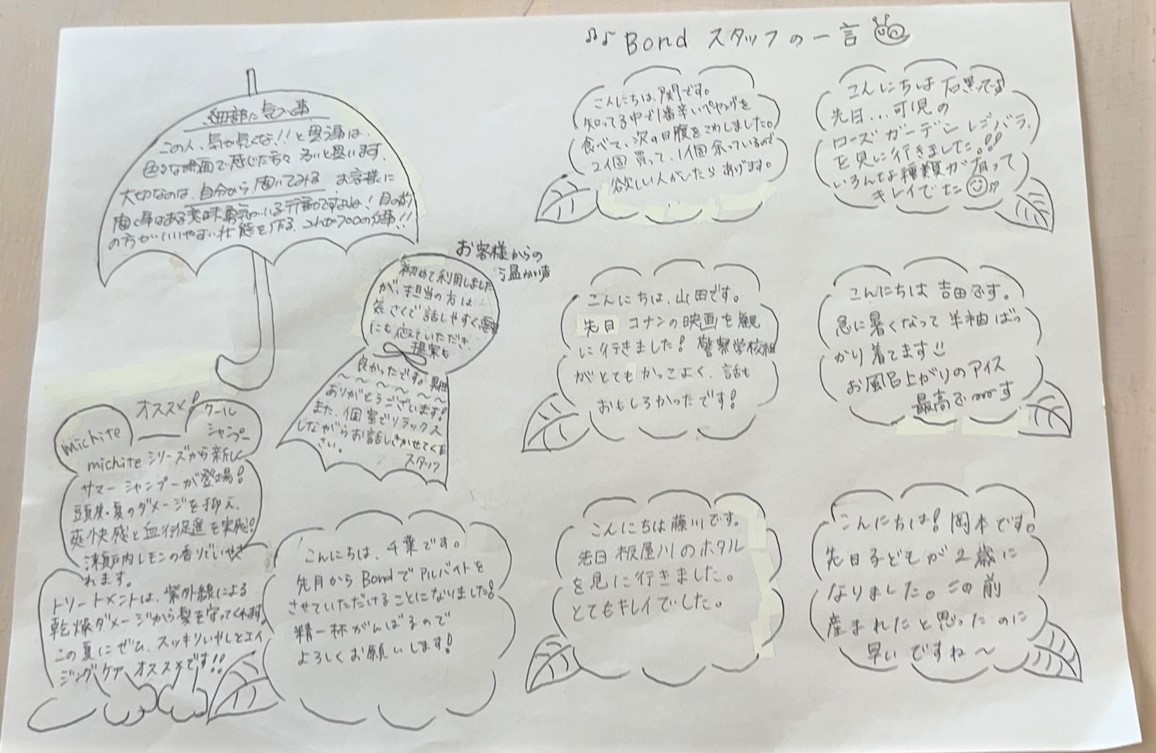 ♪♪ Bond スタッフの一言
細部に気づく事
この人、気が利くな!!と思う事は、
色々な場面で感じた方々 多いと思います。
大切なのは、自分から聞いてみる お客様に
聞く事はある意味勇気のいる行動ですよね!
の方がいいやすい状態を作る、これがプロの仕事!!
お客様からの
温かい声
初めて利用しました
が、担当の方は
気さくで話しやすく
にも
提案も
良かったです。
~~~~~~
ありがとうございます!
また、個室でリラックス
しながらお話しさせてくだ
さい。
スタッフ
オススメ!
michite
クール
シャンプー
michiteシリーズから新しく
サマーシャンプーが登場!
頭皮・夏のダメージを抑え、
爽快感と血行促進を実感!
瀬戸内レモンの香りでいやさ
れます。
トリートメントは、紫外線による
乾燥ダメージから髪を守ってくれます。
この夏にぜひ、スッキリいやしとエイ
ジングケア、オススメです!!
こんにちは、千葉です。
先月からBondでアルバイトを
させていただけることになりました!
精一杯がんばるので
よろしくお願いします!
こんにちは、です。
知ってる中で1番辛いペヤングを
食べて、次の日腹をこわしました。
2個買って、1個余っているので
欲しい人がいたらあげます。
こんにちは 石黒です
先日...可児の
ローズガーデンにバラ
を見に行きました!!!
いろんな種類が有って
キレイでした
こんにちは、山田です。
先日 コナンの映画を観
に行きました! 警察学校組
がとてもかっこよく、話も
おもしろかったです!
こんにちは 吉田です。
急に暑くなって 半袖ばっ
かり着てます!!
お風呂上がりのアイス
最高です
こんにちは 藤川です。
先日 板屋川のホタル
を見に行きました。
とてもキレイでした。
こんにちは! 岡本です。
先日子どもが2歳に
なりました。この前
産まれたと思ったのに
早いですね~